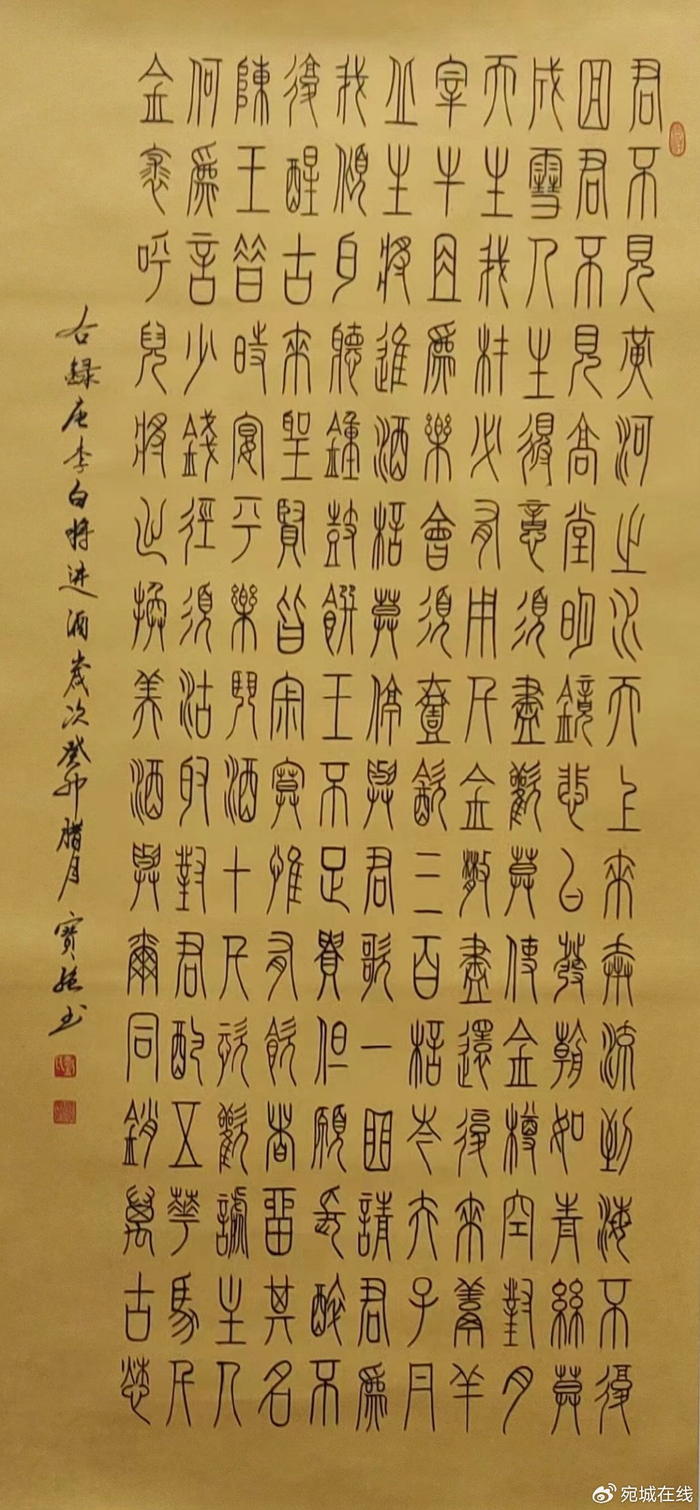 君不見黃河之水天上來奔流到海不復
回君不見高堂明鏡悲白發朝如青絲莫
成雪人生得意須盡歡莫使金樽空對月
天生我材必有用千金散盡還復來烹羊
宰牛且爲樂會須壹飲三百桮岑夫子丹
丘生將進酒桮莫停與君歌一曲請君爲
我傾耳聽鐘鼓饌玉不足貴但願長醉不
復醒古來聖賢皆寂寞惟有飲者留其名
陳王昔時宴平樂斗酒十千恣歡謔主人
何爲言少錢徑須沽取對君酌五華馬千
金裘呼兒將出換美酒與爾同銷萬古愁
右録唐李白将进酒岁次癸卯腊月寶书
宛城在线